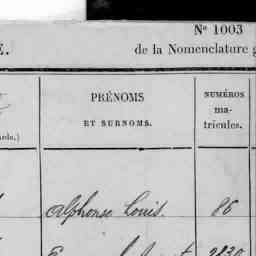 N° 1003
E. de la Nomenclature g
PRÉNOMS
ET SURNOMS.
NUMÉROS
ma-
tricules.
Alphonse Louis. 86
2830